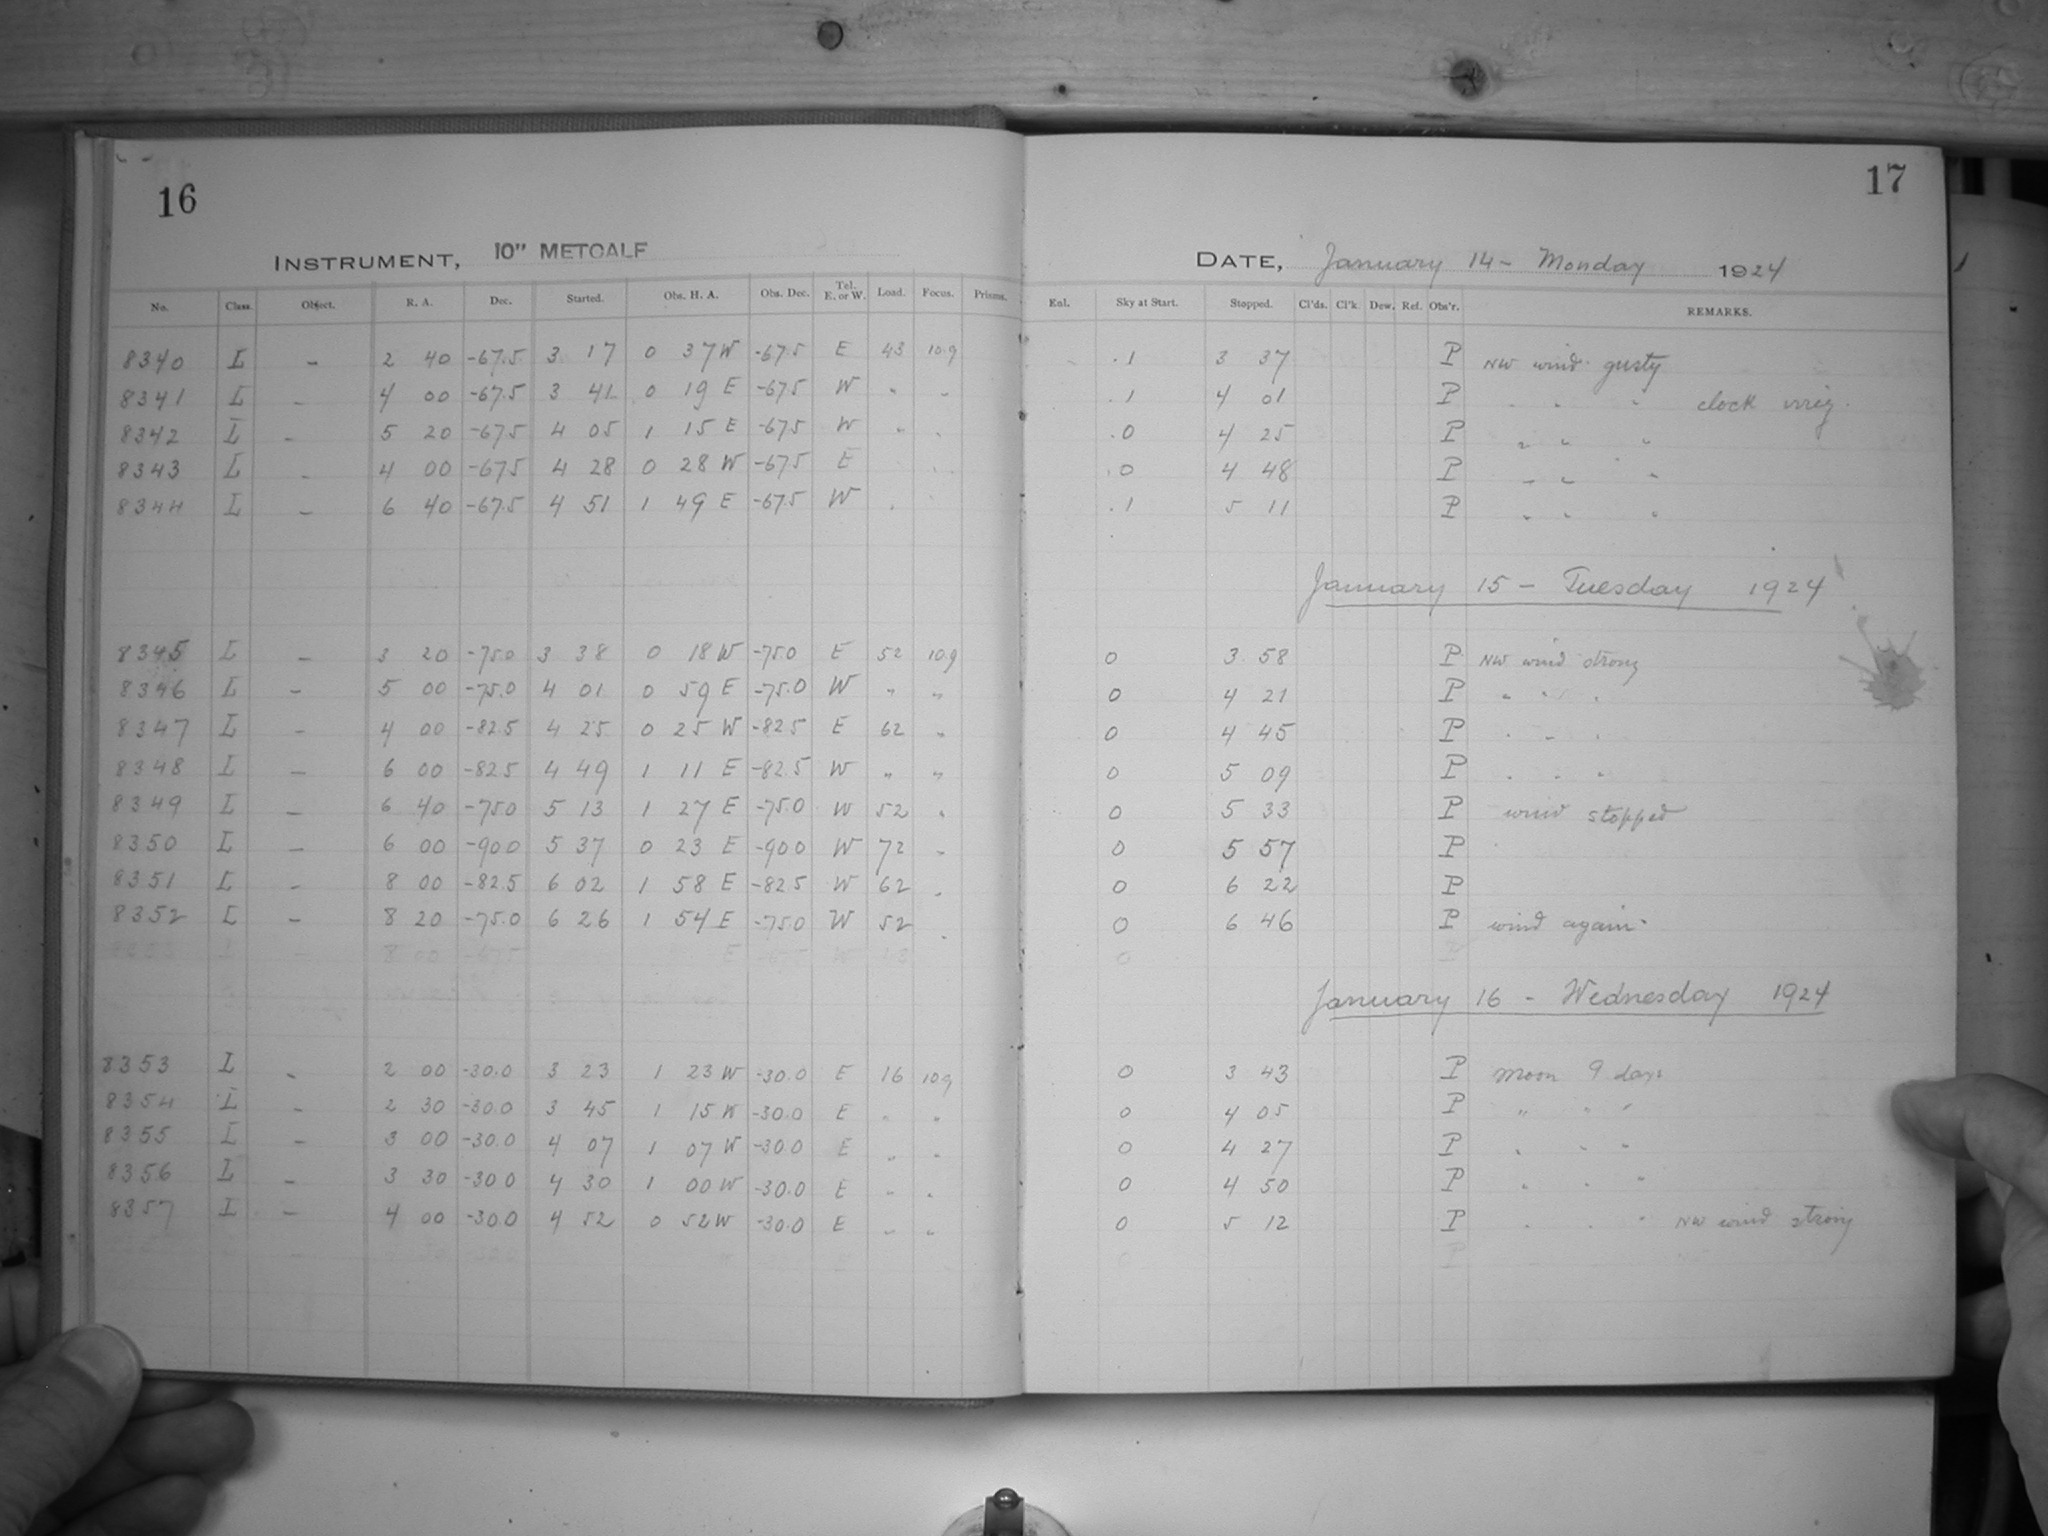 16
INSTRUMENT, 10" METCALF
No. Class. Object. R. A. Dec. Started. Obs. H. A. Obs. Dec. Tel. E. or W. Load. Focus. Prisms.
8340 L - 2 40 -67.5 3 17 0 37 W -67.5 E 43 10.9
8341 L - 4 00 -67.5 3 41 0 19 E -67.5 W " "
8342 L - 5 20 -67.5 4 05 1 15 E -67.5 W " "
8343 L - 4 00 -67.5 4 28 0 28 W -67.5 E
8344 L - 6 40 -67.5 4 51 1 49 E -67.5 W "
8345 L - 3 20 -75.0 3 38 0 18 W -75.0 E 52 10.9
8346 L - 5 00 -75.0 4 01 0 59 E -75.0 W " "
8347 L - 4 00 -82.5 4 25 0 25 W -82.5 E 62 "
8348 L - 6 00 -82.5 4 49 1 11 E -82.5 W " "
8349 L - 6 40 -75.0 5 13 1 27 E -75.0 W 52 "
8350 L - 6 00 -90.0 5 37 0 23 E -90.0 W 72 "
8351 L - 8 00 -82.5 6 02 1 58 E -82.5 W 62 "
8352 L - 8 20 -75.0 6 26 1 54 E -75.0 W 52 "
8353 L - 2 00 -30.0 3 23 1 23 W -30.0 E 16 10.9
8354 L - 2 30 -30.0 3 45 1 15 W -30.0 E " "
8355 L - 3 00 -30.0 4 07 1 07 W -30.0 E " "
8356 L - 3 30 -30.0 4 30 1 00 W -30.0 E " "
8357 L - 4 00 -30.0 4 52 0 52 W -30.0 E " "
17
DATE, January 14 - Monday 1924
Eol. Sky at Start. Stopped. Cl'ds. Cl'k. Dew. Ref. Obs'r. REMARKS.
.1 3 37 P NW wind gusty
.1 4 01 P " " " clock
.0 4 25 P " " "
.0 4 48 P " " "
.1 5 11 P " " "
January 15 - Tuesday 1924
0 3 58 P NW wind strong
0 4 21 P " " "
0 4 45 P " " "
0 5 09 P " " "
0 5 33 P wind stopped
0 5 57 P
0 6 22 P
0 6 46 P wind again
January 16 - Wednesday 1924
0 3 43 P Moon 9 days
0 4 05 P " " "
0 4 27 P " " "
0 4 50 P " " "
0 5 12 P " " " NW wind strong